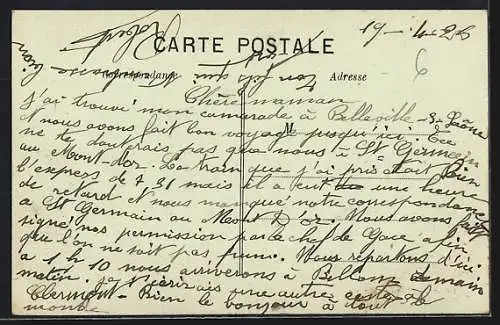 19-4-26
CARTE POSTALE
Correspondance Adresse
6
Ton fils qui
Chère maman
J'ai trouvé mon camarade à Belleville-s-Saône
et nous avons fait bon voyage jusqu'ici. Ce
ne doutrais pas que nous à St Germain
au Mont-d'or. Le train que j'ai pris était bien
l'express de 7 31 mais il a eut une heure
de retard et nous manqué notre correspondance
à St Germain au Mont d'or. Nous avons fait
signé nos permission par le chef de Gare afin
que l'on ne soit pas puni. Nous repartons d'ici
à 1 h 10 nous arriverons à demain
matin. Je t'écrirais une autre carte de
Clermont. Bien le bonjour à tout le
monde